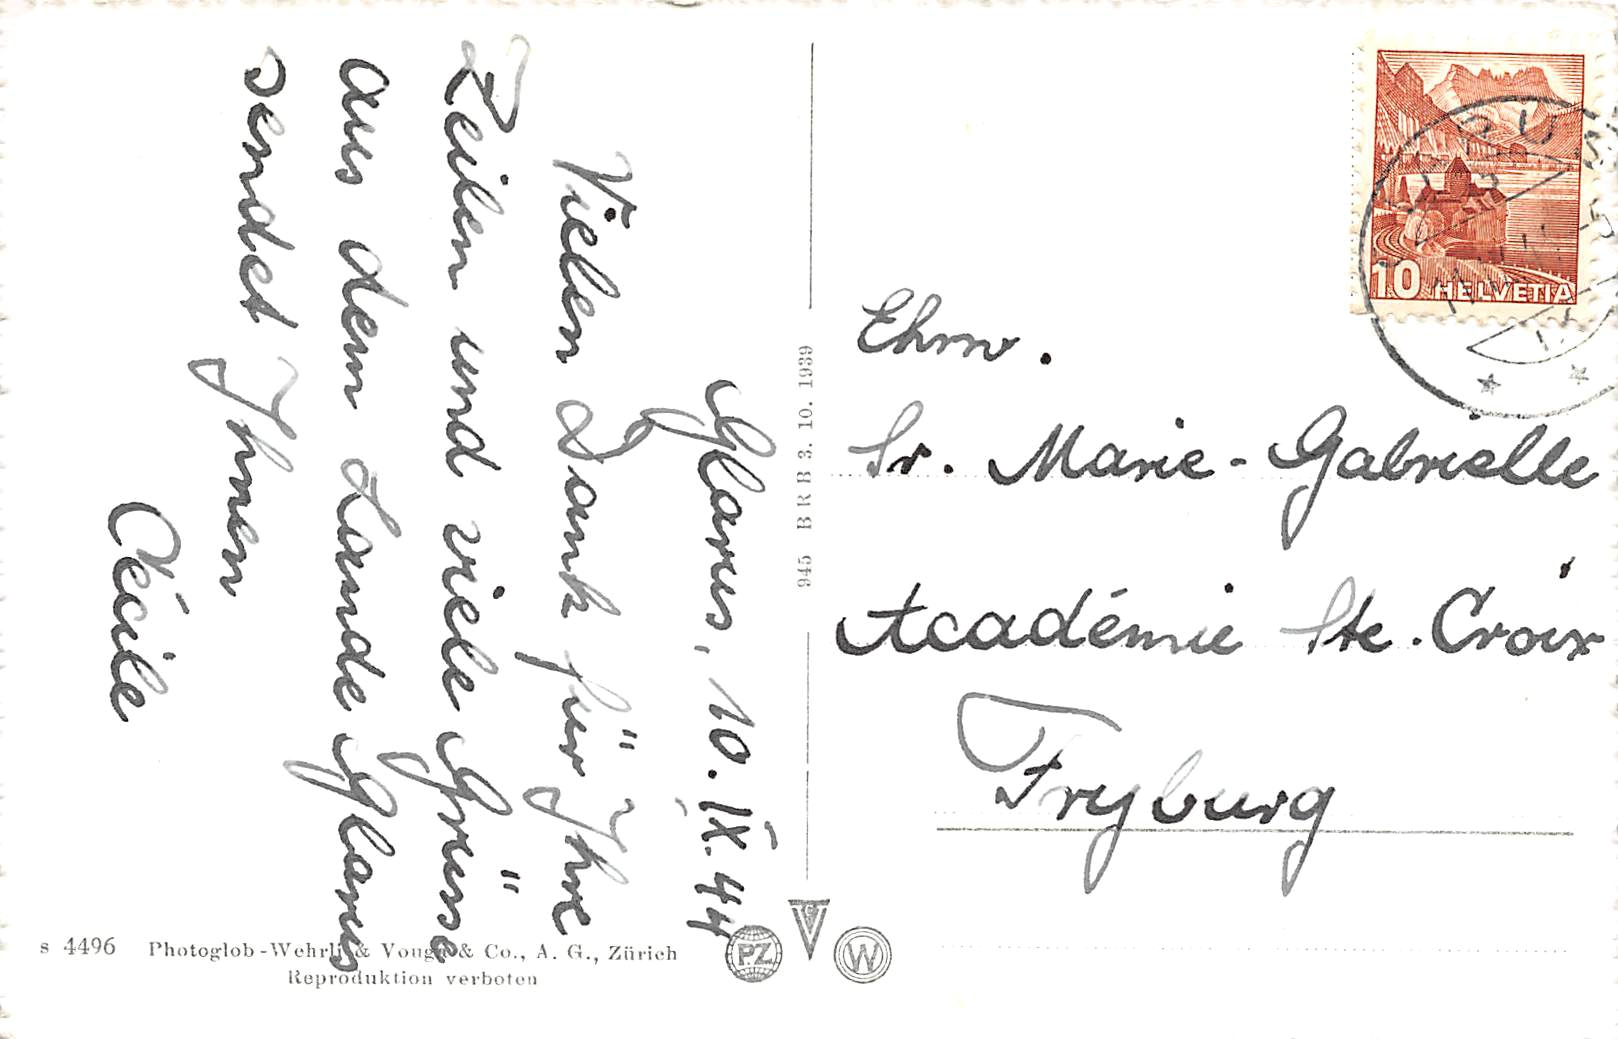 Glarus, 10. IX. 44
Vielen Dank für Ihre
Zeilen und viele Grüsse
aus dem Lande Glarus
sendet Ihnen
Cécile
s 4496 Photoglob-Wehrli & Vouga & Co., A. G., Zürich
Reproduktion verboten
945 B R B 3. 10. 1939
PZ
W
10 HELVETIA
Ehrw.
Sr. Marie-Gabrielle
Académie Ste. Croix
Fryburg